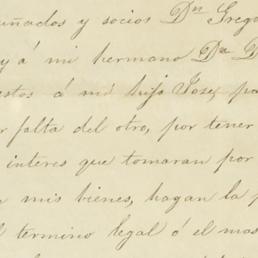 uñados y socios Dn Grego
y á mi hermano Dn D
estos á mi hijo José, pa
r falta del otro, por tener
interes que tomaran por
mis bienes, hagan la p
l termino legal ó el mas